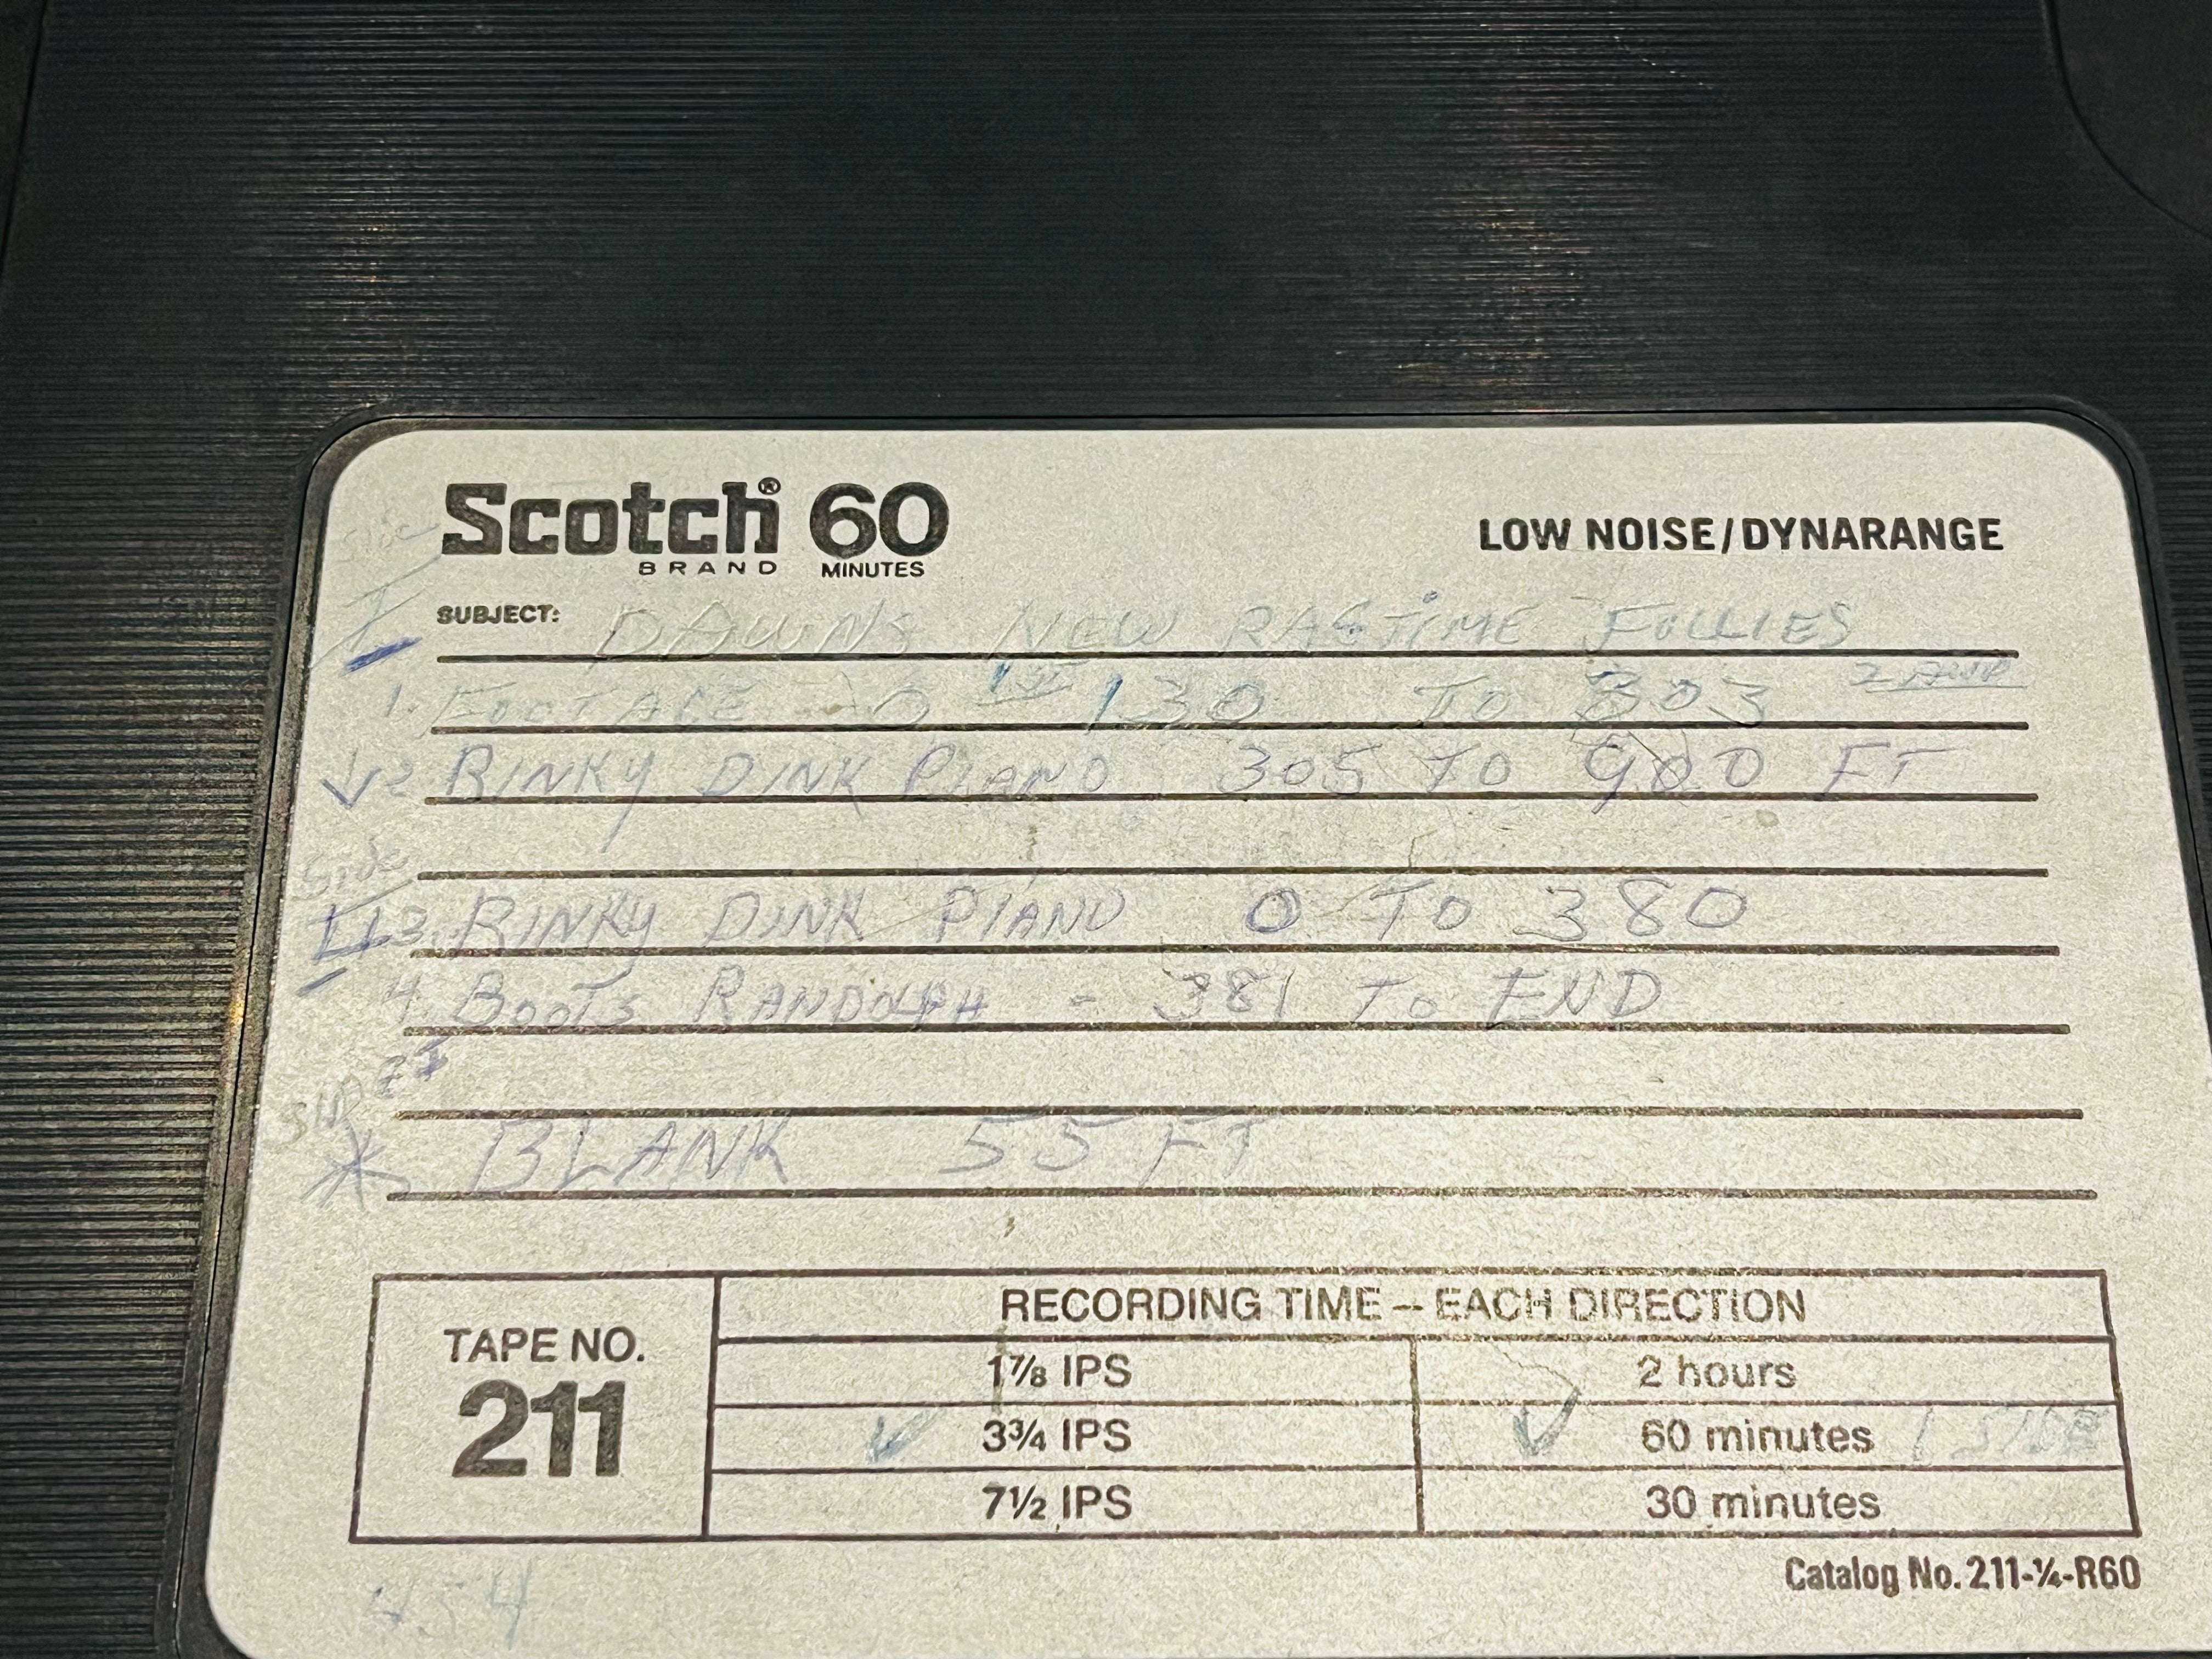 Scotch® 60
BRAND MINUTES
LOW NOISE/DYNARANGE
Side
I
SUBJECT: DAWNS NEW RAGTIME FOLLIES
1. FOOTAGE - 0 1ST 130 TO 303
2 RINKY DINK PIANO 305 TO 900 FT
Side
II 3. RINKY DINK PIANO 0 TO 380
4. BOOTS RANDOLPH - 381 TO END
* BLANK 55 FT
TAPE NO.
211
RECORDING TIME – EACH DIRECTION
1⅞ IPS 2 hours
✓ 3¾ IPS ✓ 60 minutes 1 SIDE
7½ IPS 30 minutes
Catalog No. 211-¼-R60
454